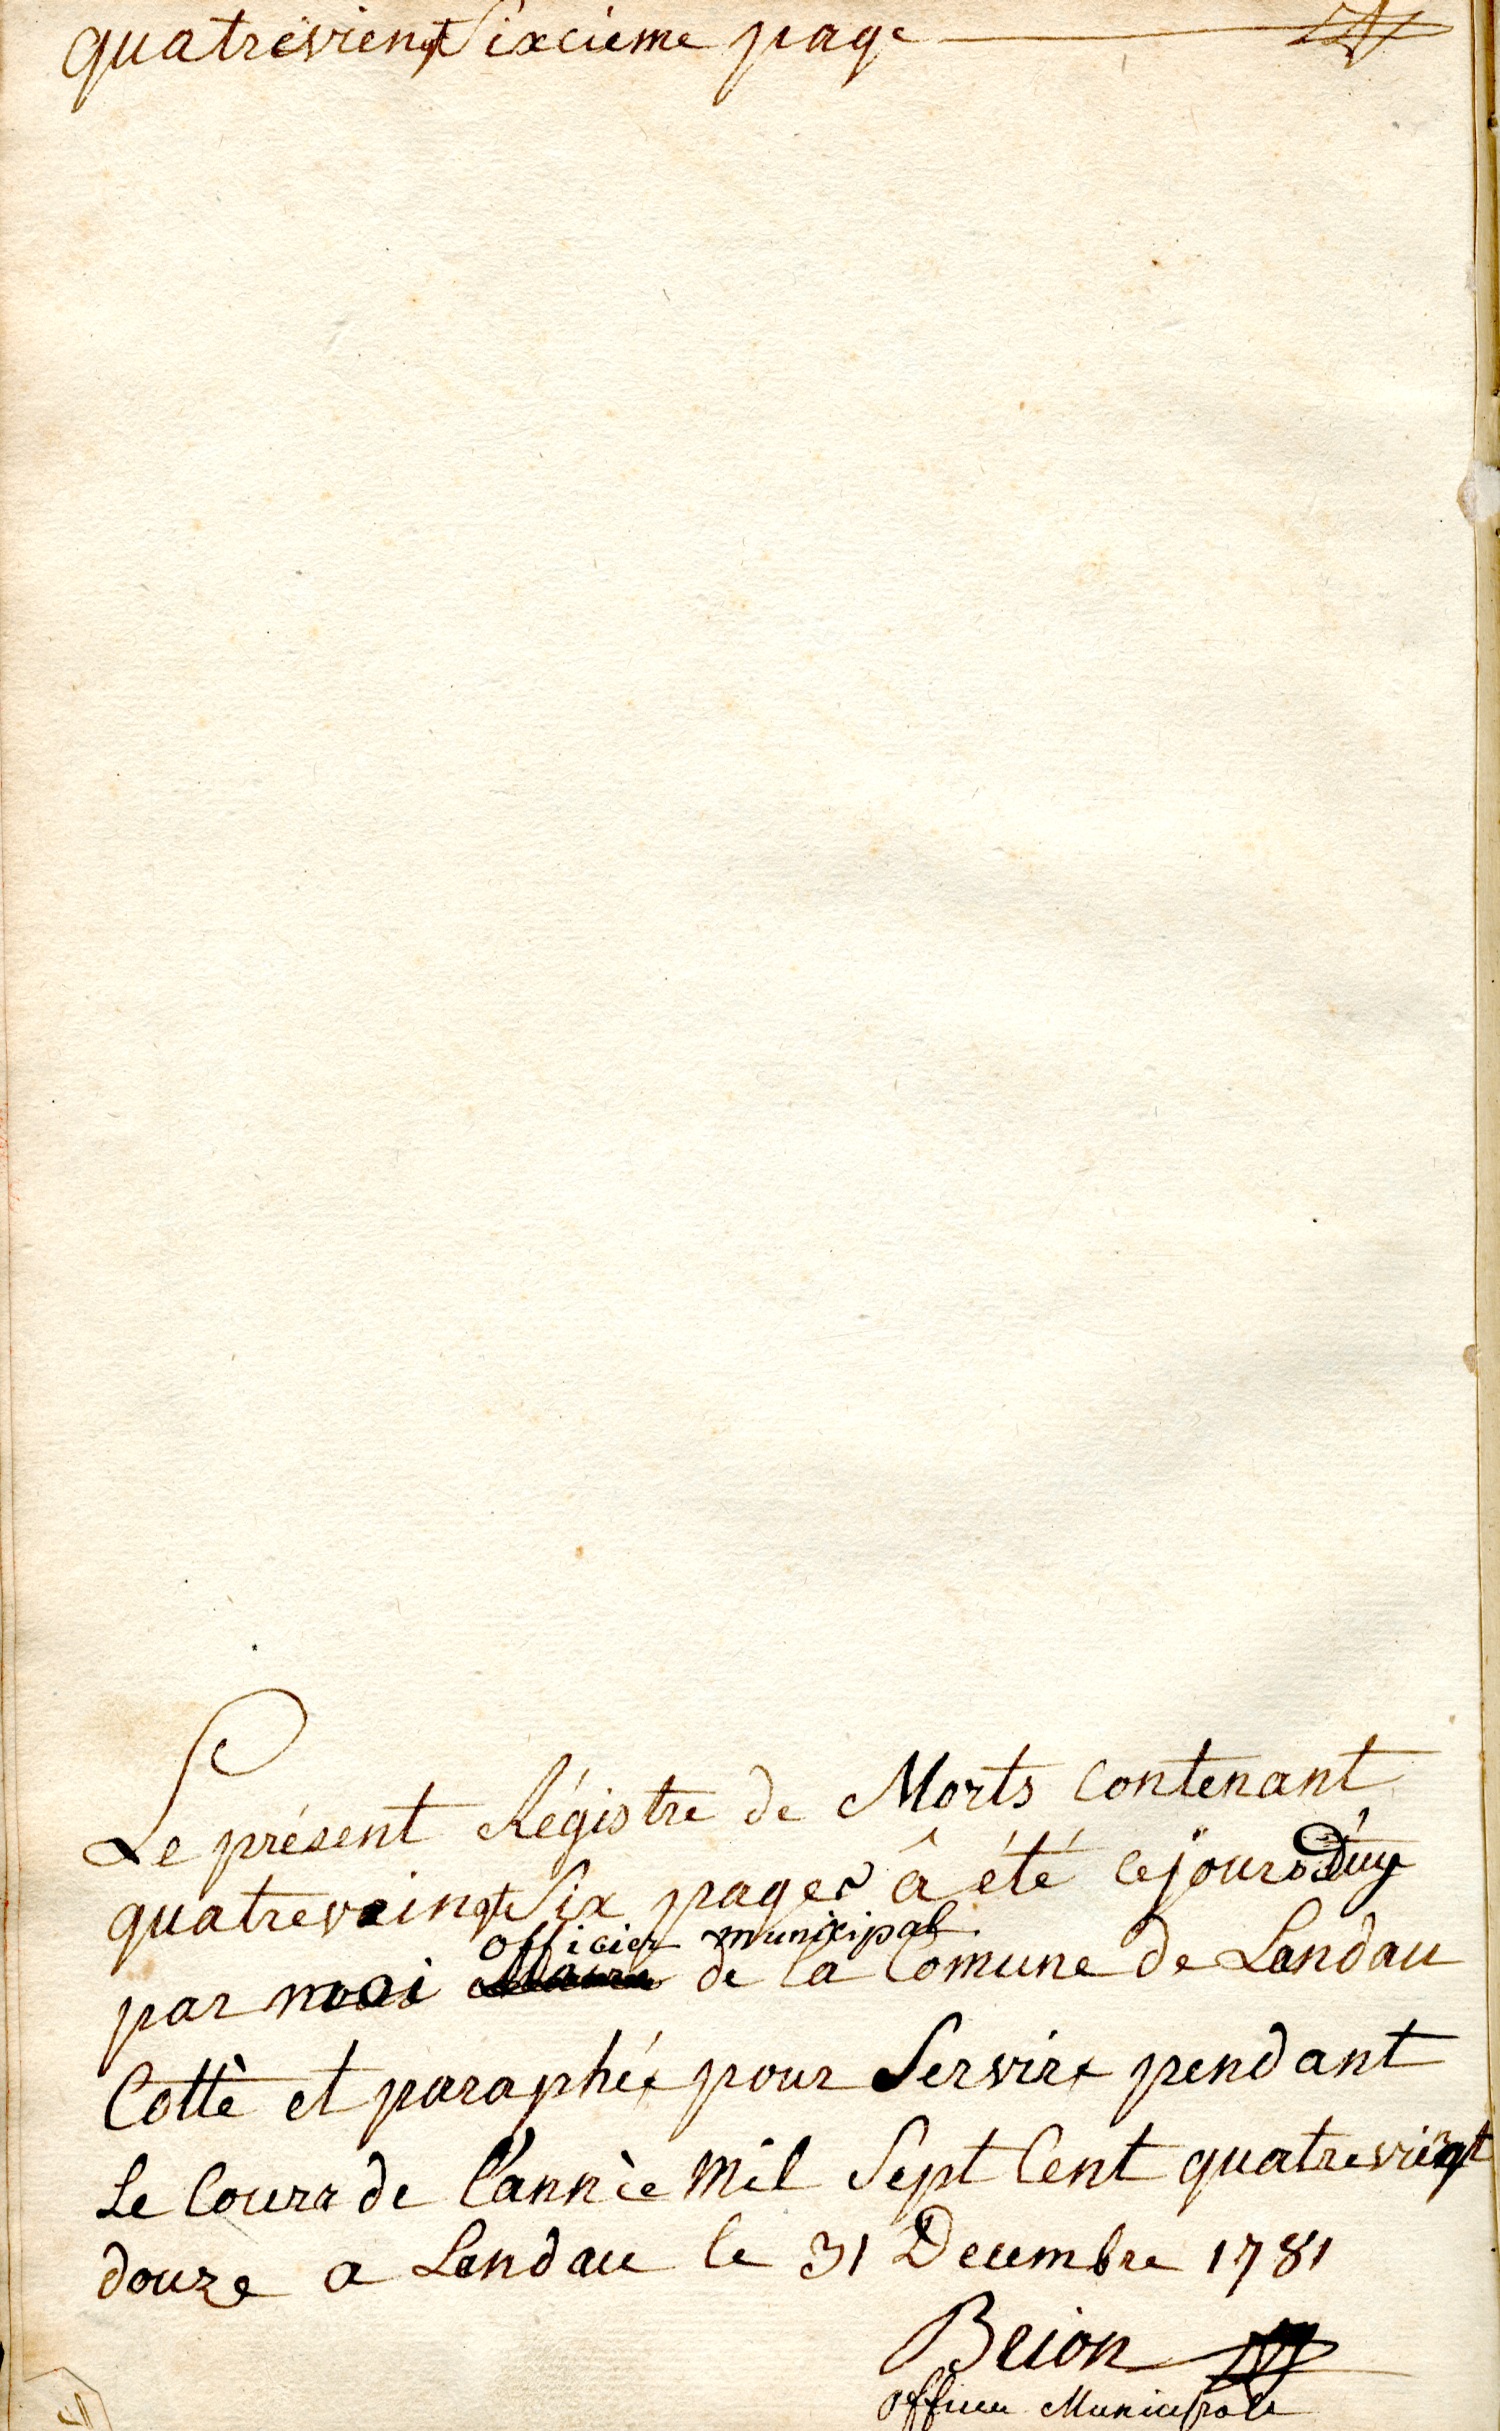 quatrevienqt Sixcieme page
Le présent Régistre de Morts Contenant
quatrevainqt Six pages â été ce joursd'uy
Officier municipal
par moi Maire de la Comune de Landau
Cottè et paraphée pour Servire pendant
Le Cours de l'annèe Mil Sept Cent quatrevieqt
douze a Landau le 31 Decembre 1781
Brion
officier Municipale